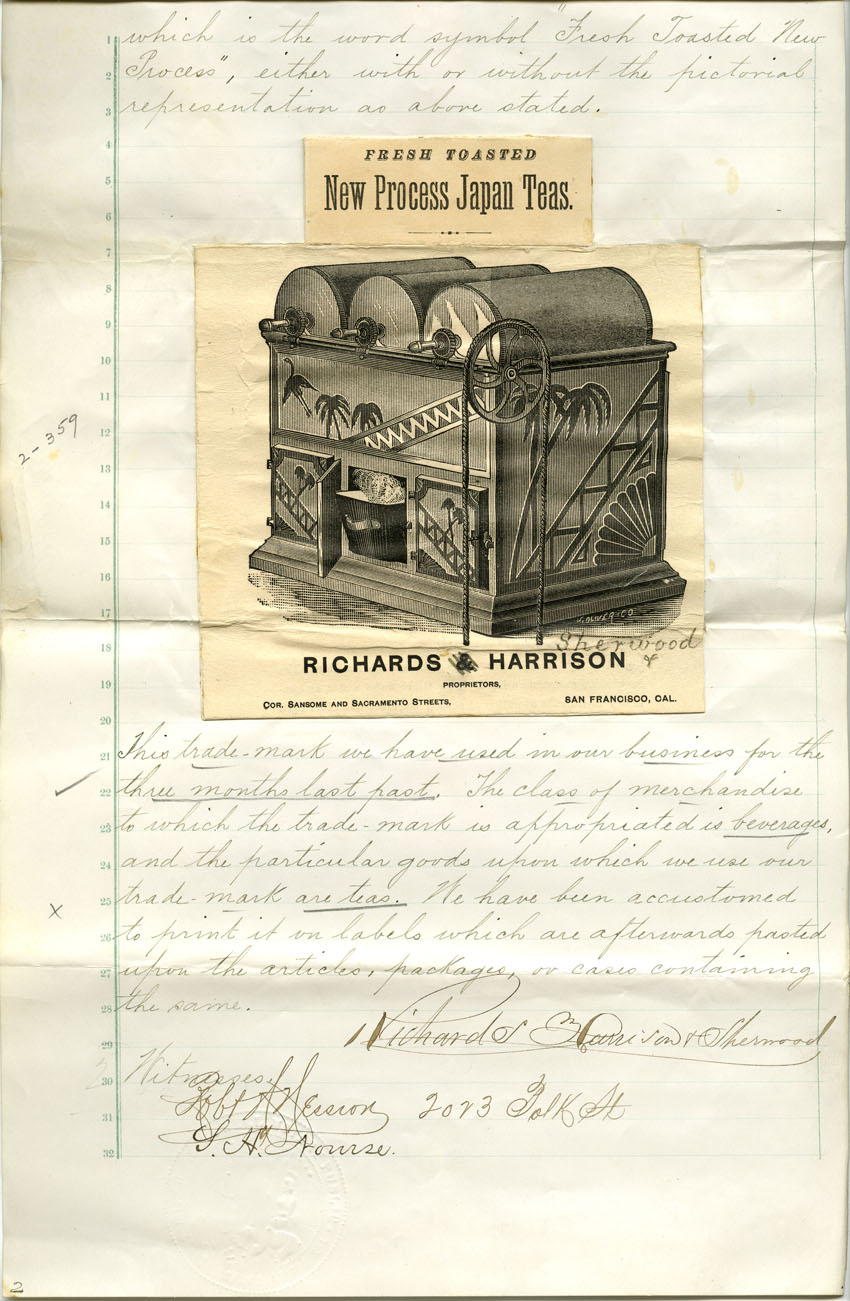 1 which is the word symbol "Fresh Toasted New
2 Process", either with or without the pictorial
3 representation as above stated.
4 FRESH TOASTED
5 New Process Japan Teas.
6
7
8
9
10
11
12
2-359
13
14
15
16
17
18 Sherwood
RICHARDS & HARRISON &
19 PROPRIETORS,
COR. SANSOME AND SACRAMENTO STREETS, SAN FRANCISCO, CAL.
20
21 This trade-mark we have used in our business for the
22 three months last past. The class of merchandise
23 to which the trade-mark is appropriated is beverages,
24 and the particular goods upon which we use our
25 trade-mark are teas. We have been accustomed
x
26 to print it on labels which are afterwards pasted
27 upon the articles, packages, or cases containing
28 the same.
29 Richards Harrison & Sherwood
30 Witnesses.
31 Robt 2023 Polk St
32 Nourse.
2